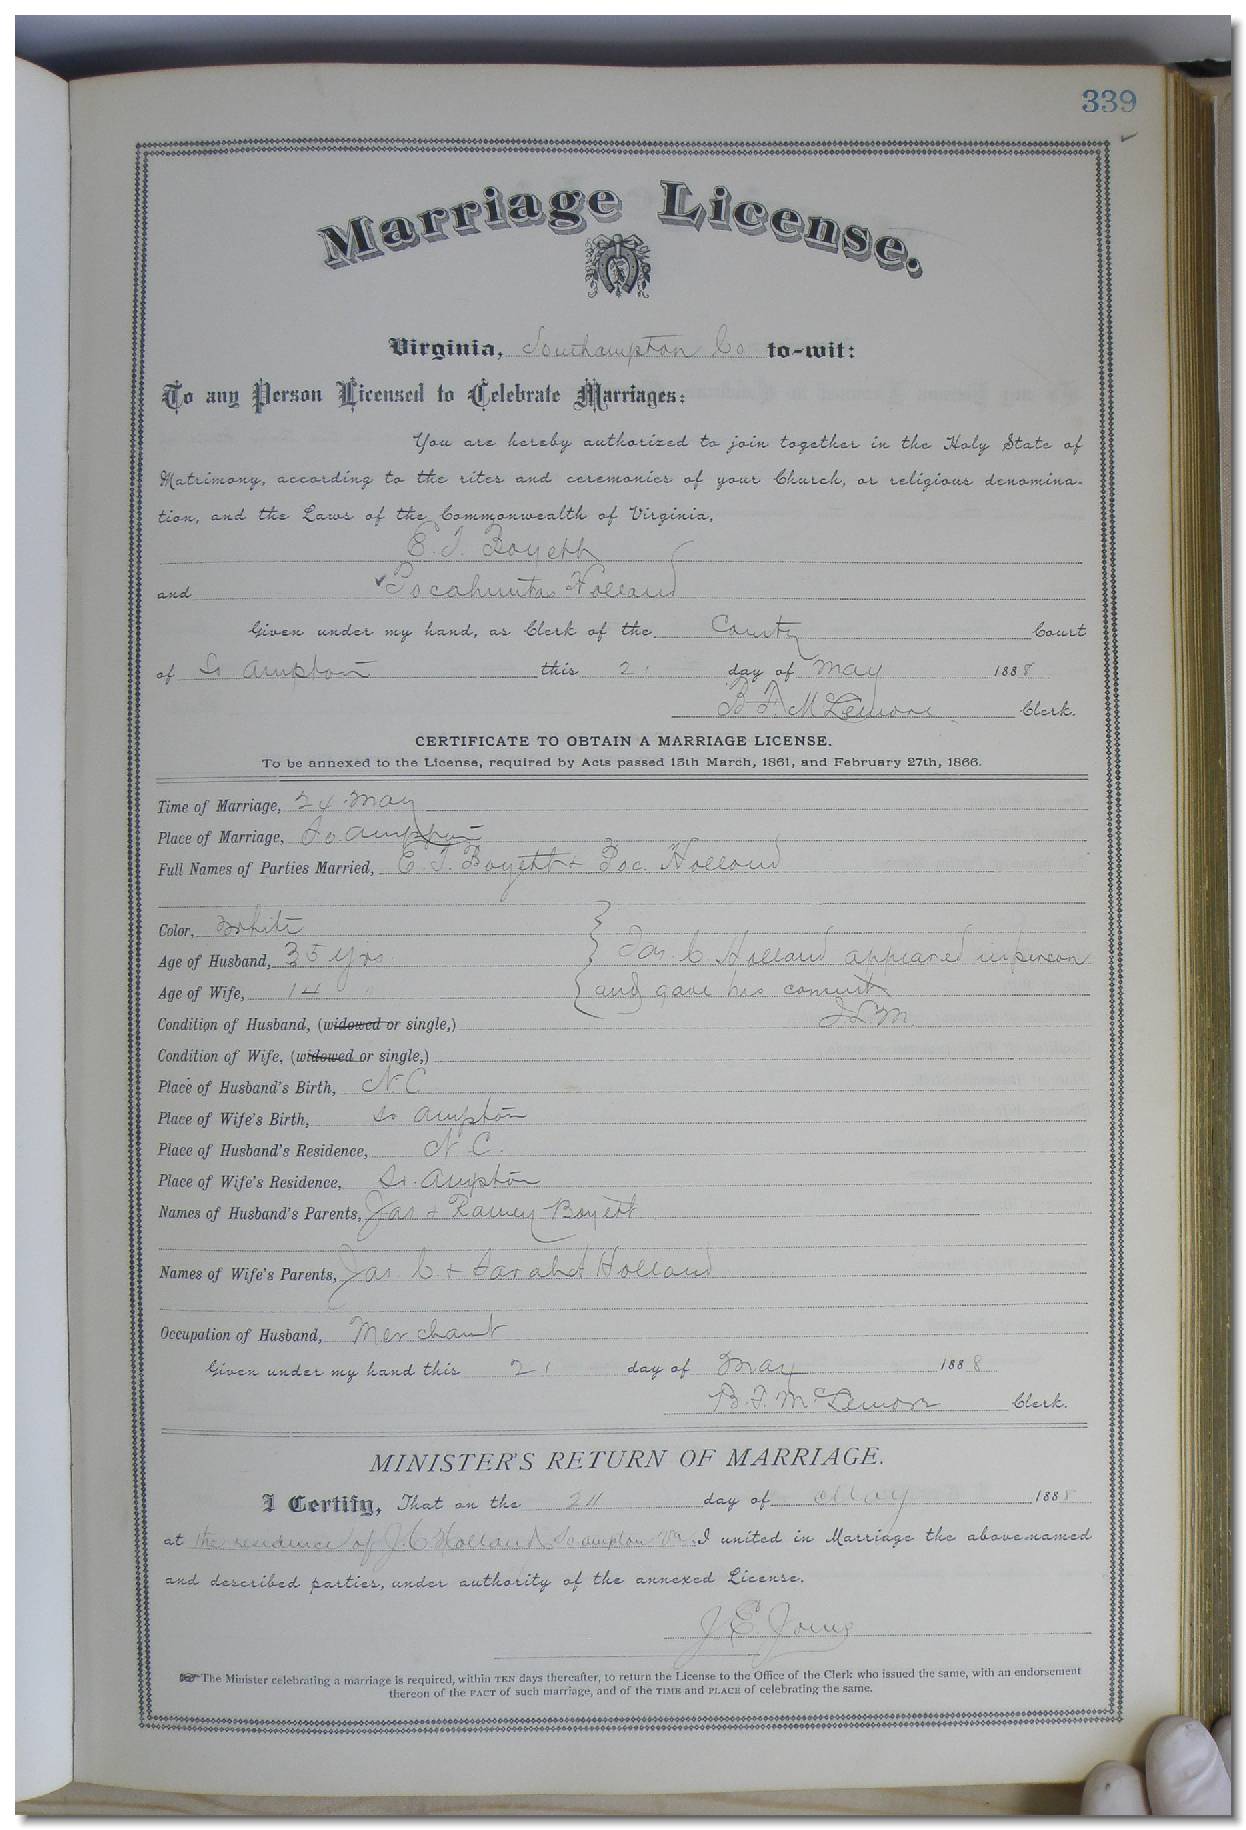 339
Marriage License.
Virginia, Southampton Co to-wit:
To any Person Licensed to Celebrate Marriages:
You are hereby authorized to join together in the Holy State of
Matrimony, according to the rites and ceremonies of your Church, or religious denomina-
tion, and the Laws of the Commonwealth of Virginia,
E. T. Boyett
and Pocahuntas Holland
Given under my hand, as Clerk of the County Court
of So ampton this 21 day of May 1888
B. F. McLemore Clerk.
CERTIFICATE TO OBTAIN A MARRIAGE LICENSE.
To be annexed to the License, required by Acts passed 15th March, 1861, and February 27th, 1866.
Time of Marriage, 24 May
Place of Marriage, So ampton
Full Names of Parties Married, E. T. Boyett + Poc. Holland
Color, White
Age of Husband, 35 yrs Jas. C Holland appeared in person
Age of Wife, 14 " and gave his consent
Condition of Husband, (widowed or single,)
Condition of Wife, (widowed or single,)
Place of Husband's Birth, N. C.
Place of Wife's Birth, So ampton
Place of Husband's Residence, N. C.
Place of Wife's Residence, So. ampton
Names of Husband's Parents, Jas + Ramey Boyett
Names of Wife's Parents, Jas. C. + Sarah Holland
Occupation of Husband, Merchant
Given under my hand this 21 day of May 1888
B. F. McLemore Clerk.
MINISTER'S RETURN OF MARRIAGE.
I Certify, That on the 24 day of May 1888
at the residence of J. C. Holland So ampton Va. I united in Marriage the above-named
and described parties, under authority of the annexed License.
J. E. Jones
The Minister celebrating a marriage is required, within TEN days thereafter, to return the License to the Office of the Clerk who issued the same, with an endorsement
thereon of the FACT of such marriage, and of the TIME and PLACE of celebrating the same.